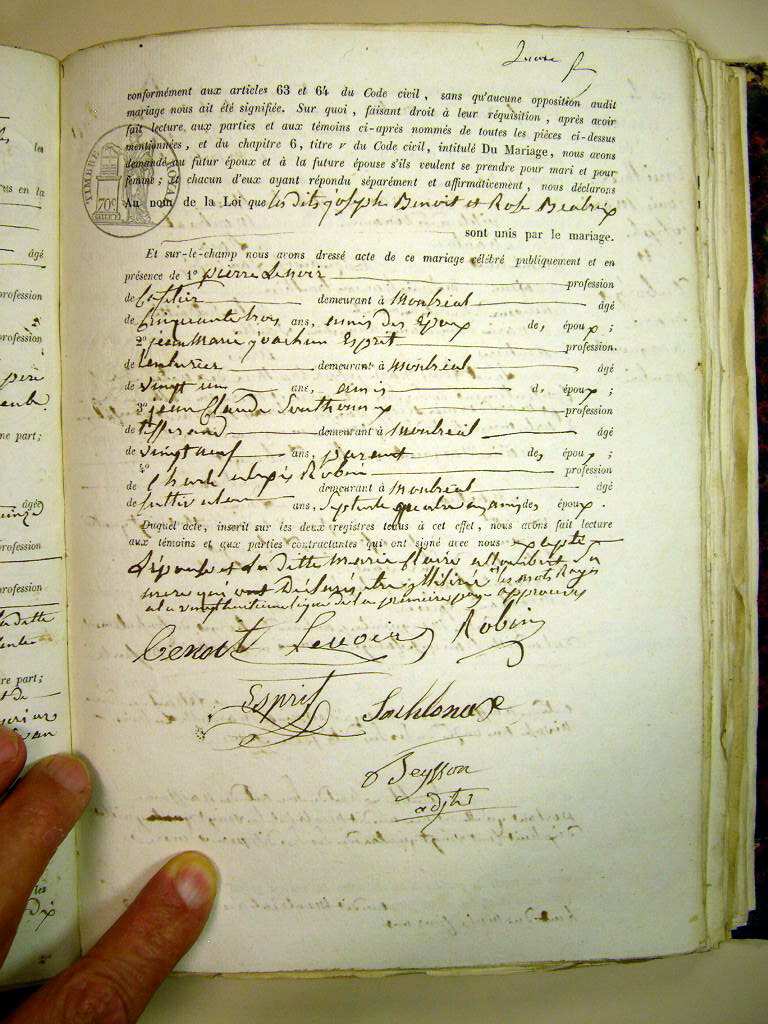 conformément aux articles 63 et 64 du Code civil, sans qu'aucune opposition audit
mariage nous ait été signifiée. Sur quoi, faisant droit à leur réquisition, après avoir
fait lecture aux parties et aux témoins ci-après nommés de toutes les pièces ci-dessus
mentionnées, et du chapitre 6, titre v du Code civil, intitulé Du Mariage, nous avons
demandé au futur époux et à la future épouse s'ils veulent se prendre pour mari et pour
femme; et chacun d'eux ayant répondu séparément et affirmativement, nous déclarons
Au nom de la Loi que lesdits joseph Benoit et Rose Beatrix
sont unis par le mariage.
Et sur-le-champ nous avons dressé acte de ce mariage célébré publiquement et en
présence de 1° pierre Lenoir profession
de demeurant à Montréal âgé
de Cinquante trois ans, amis des époux de, époux;
2° jean Marie joachim Esprit profession
de demeurant à Montréal âgé
de vingt un ans, amis d, époux;
3° jean Claude profession
de tisserand demeurant à Montréal âgé
de vingt neuf ans, parent de, époux;
4° Charle alexis Robin profession
de Cultivateur demeurant à Montréal âgé
ans, septante quatre ans amis des époux.
Duquel acte, inscrit sur les deux registres tenus à cet effet, nous avons fait lecture
aux témoins et aux parties contractantes qui ont signé avec nous excepté
L'épouse et La ditte marie Claire sa
mere qui ont Déclaré être les mots Rayés
a la vingt huitieme ligne de la premiere page approuvés
Benoit Lenoir Robin
Esprit Sachlonaxe
Seysson
adjt
TIMBRE ROYAL
70c